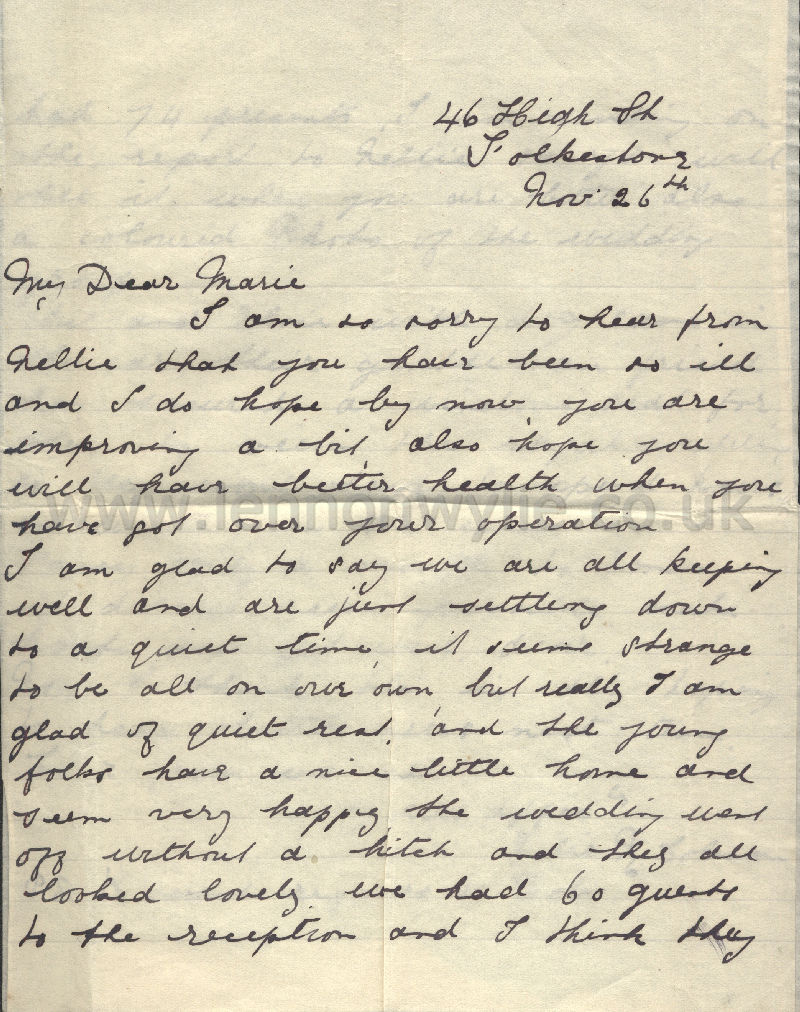 46 High St
Folkestone
Nov. 26th
My Dear Marie
I am so sorry to hear from
Nellie that you have been so ill
and I do hope by now you are
improving a bit, also hope you
will have better health when you
www.lennonwylie.co.uk
have got over your operation
I am glad to say we are all keeping
well and are just settling down
to a quiet time, it seems strange
to be all on our own, but really I am
glad of quiet rest, and the young
folks have a nice little home and
seem very happy the wedding went
off without a hitch and they all
looked lovely we had 60 guests
to the reception and I think they